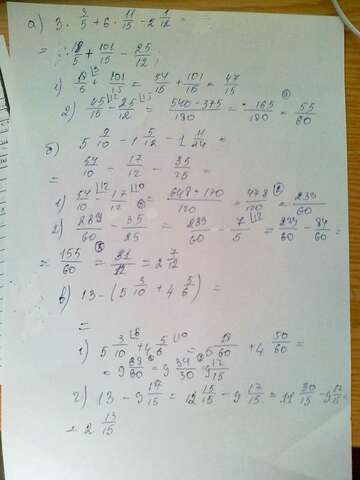 а) 3 · 3/5 + 6 · 11/15 - 2 1/12 =
= 18/5 + 101/15 - 25/12;
1) 18/5 + 101/15 = 54/15 + 101/15 = 47/15
2) 45/15 - 25/12 = 540 - 375/180 = 165/180 = 55/60
б) 5 7/10 - 1 5/12 - 1 11/24 =
= 57/10 - 17/12 - 35/25 =
1) 57/10 - 17/12 = 648 - 170/120 = 478/120 = 239/60
2) 239/60 - 35/25 = 239/60 - 7/5 = 239/60 - 84/60 =
= 155/60 = 31/12 = 2 7/12
в) 13 - (5 3/10 + 4 5/6) =
=
1) 5 3/10 + 4 5/6 = 5 18/60 + 4 50/60 =
= 9 68/60 = 9 34/30 = 9 17/15
2) 13 - 9 17/15 = 12 15/15 - 9 17/15 = 11 30/15 - 9 17/15
= 2 13/15